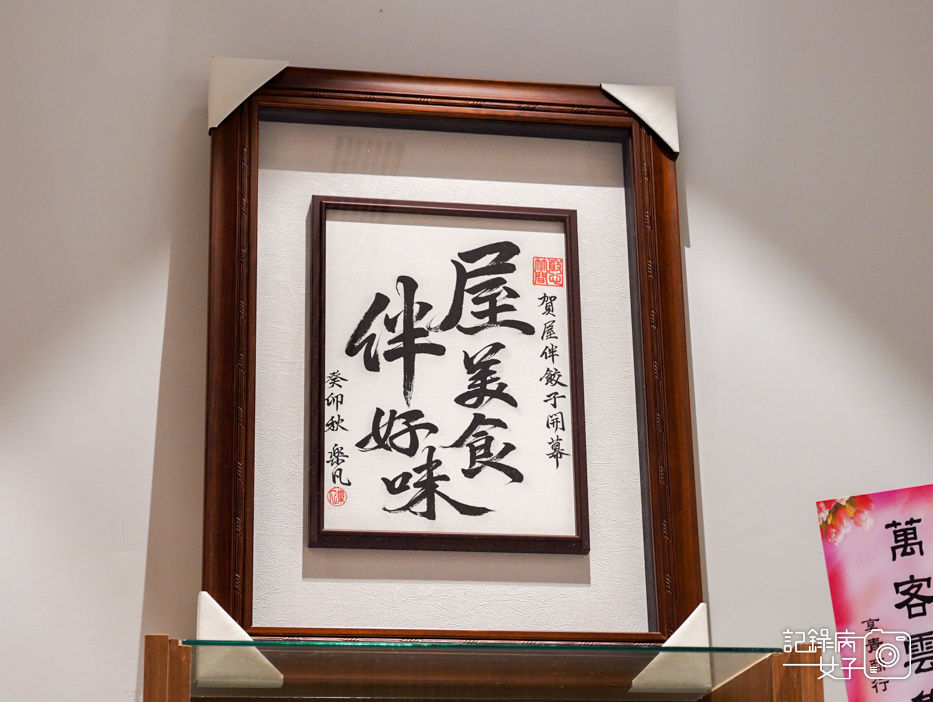 賀屋伴餃子開幕
屋美食
伴好味
癸卯秋 樂凡
萬客雲
記錄病
女子